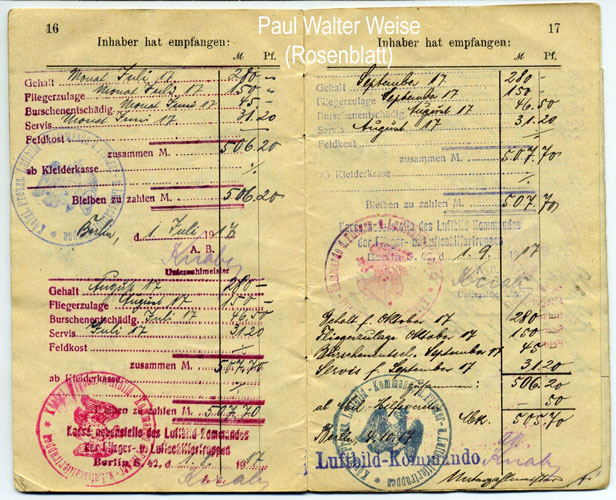 Paul Walter Weise
(Rosenblatt)
16
Inhaber hat empfangen:
M Pf.
Gehalt Monat Juli 17 280 –
Fliegerzulage Monat Juli 17 150 –
Burschenentschädig. Monat Juni 17 45 –
Servis Monat Juni 17 31.20
Feldkost
zusammen M. 506.20
ab Kleiderkasse
Bleiben zu zahlen M. 506.20
Berlin, d. 1 Juli 1917
A. B.
Knab
Unterzahlmeister
Gehalt August 17 280 –
Fliegerzulage August 17 150 –
Burschenentschädig. Juli 17 46.50
Servis Juli 17 31.20
Feldkost
zusammen M. 507.70
ab Kleiderkasse
Bleiben zu zahlen M. 507.70
Kassenverwaltung des Luftbild-Kommandos
der Flieger- u. Luftschiffertruppen
Berlin S. 42, 1917
Knab
17
Inhaber hat empfangen:
M Pf.
Gehalt September 17 280 –
Fliegerzulage September 17 150 –
Burschenentschädig. August 17 46.50
Servis August 17 31.20
Feldkost
zusammen M. 507.70
ab Kleiderkasse
Bleiben zu zahlen M. 507.70
des Luftbild Kommandos
der Flieger- u. Luftschiffertruppen
Berlin S. 42, d. 1.9. 1917
A. B.
Knab
Gehalt f. Oktober 17 280
Fliegerzulage Oktober 17 150
September 17 45
Servis f. September 17 31.20
506.20
ab 50
Mk. 505.70
Berlin 10.17
Luftbild-Kommando
Knab
Unterzahlmeister